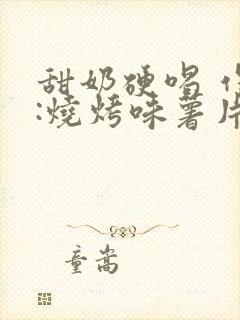 甜奶硬唱
:燒烤味薯片
童嵩